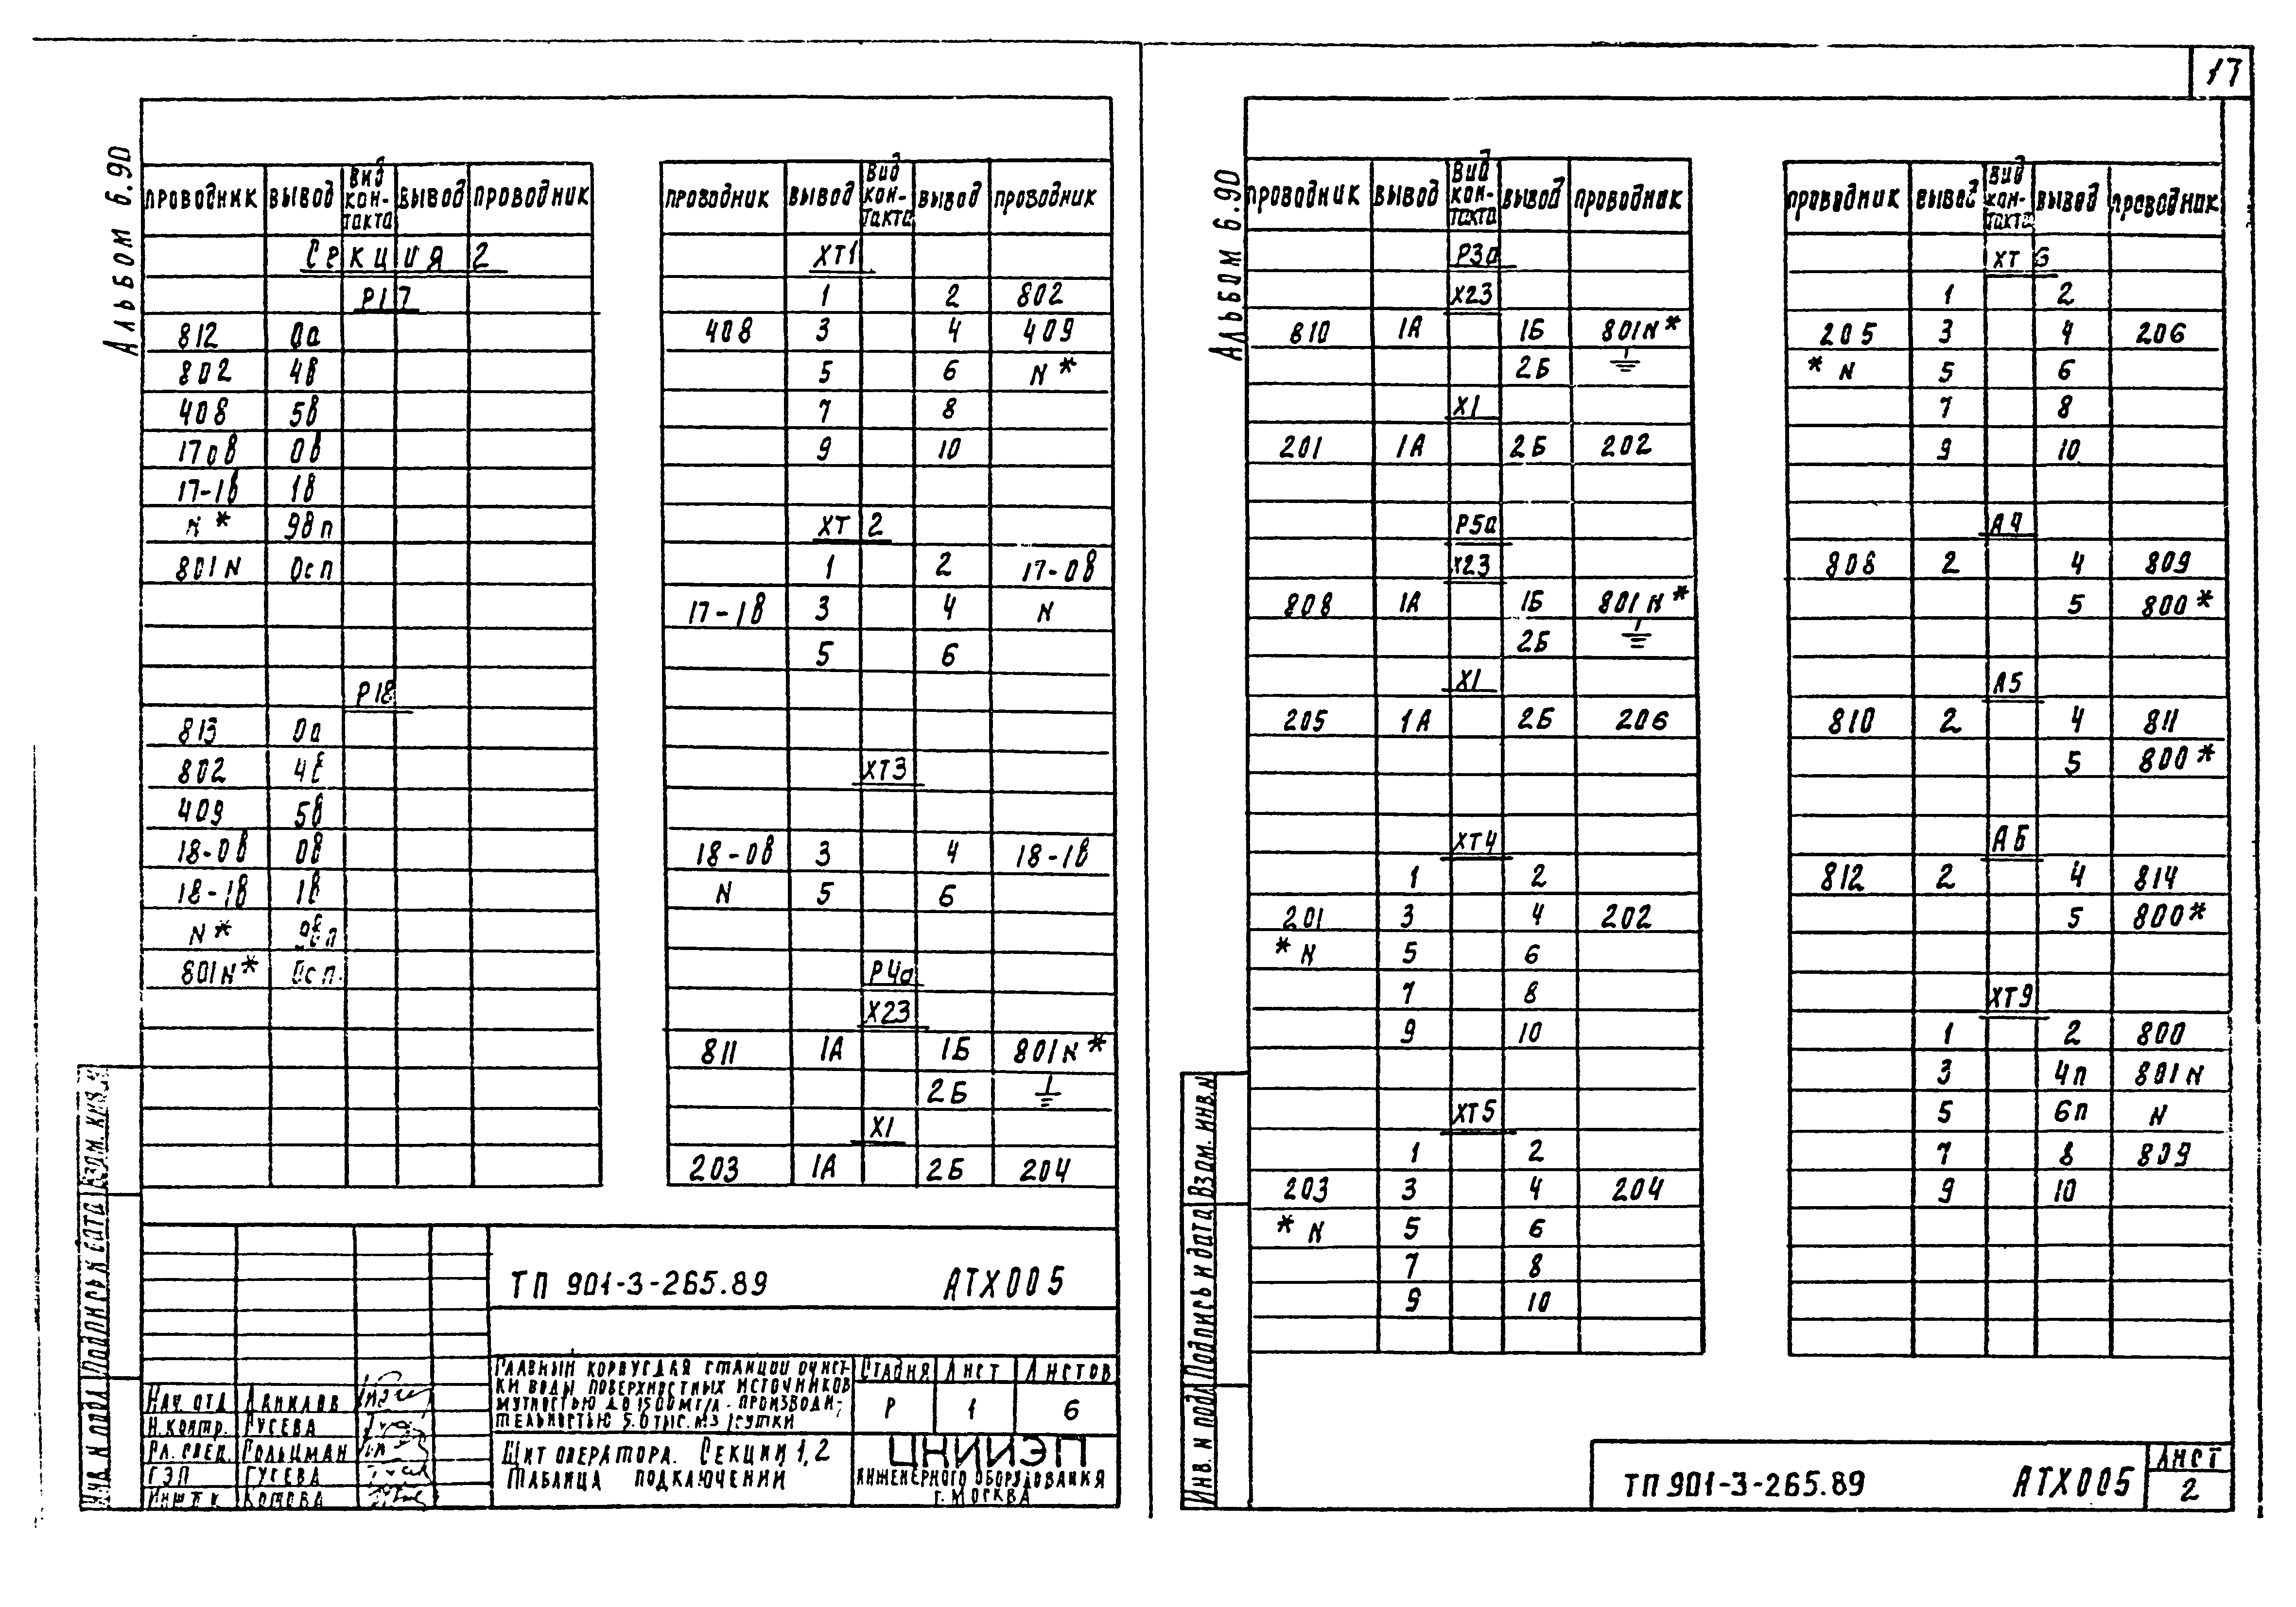 17
Альбом 6.90
проводник вывод вид кон-такта вывод проводник
Секция 2
Р17
812 0а
802 4в
408 5в
170в 0в
17-1в 1в
N* 9вп
801N 0сп
Р18
813 0а
802 4в
409 5в
18-0в 0в
18-1в 1в
N*
801N* 0сп
проводник вывод вид кон-такта вывод проводник
ХТ1
1 2 802
408 3 4 409
5 6 N*
7 8
9 10
ХТ 2
1 2 17-0в
17-1в 3 4 N
5 6
ХТ3
18-0в 3 4 18-1в
N 5 6
Р4а
Х23
811 1А 1Б 801N*
2Б ⏚
Х1
203 1А 2Б 204
ТП 901-3-265.89 АТХ005
Главный корпус для станции очист-
ки воды поверхностных источников
мутностью до 1500мг/л. производи-
тельностью 5.0 тыс. м3/сутки
Стадия Лист Листов
Р 1 6
Щит оператора. Секции 1,2
Таблица подключений
ЦНИИЭП
инженерного оборудования
г. Москва
Нач. отд. Данилов
Н.контр. Гусева
Гл. спец. Гольцман
ГЭП Гусева
Котова
Взам. инв. N
Подпись и дата
Инв. N подл
Альбом 6.90
проводник вывод вид кон-такта вывод проводник
Р3а
Х23
810 1А 1Б 801N*
2Б ⏚
Х1
201 1А 2Б 202
Р5а
Х23
808 1А 1Б 801N*
2Б ⏚
Х1
205 1А 2Б 206
ХТ4
1 2
201 3 4 202
*N 5 6
7 8
9 10
ХТ5
1 2
203 3 4 204
*N 5 6
7 8
9 10
проводник вывод вид кон-такта вывод проводник
ХТ 6
1 2
205 3 4 206
*N 5 6
7 8
9 10
А4
808 2 4 809
5 800*
А5
810 2 4 811
5 800*
А6
812 2 4 814
5 800*
ХТ9
1 2 800
3 4п 801N
5 6п N
7 8 809
9 10
Взам. инв. N
Подпись и дата
Инв. N подл
ТП 901-3-265.89 АТХ005
Лист
2